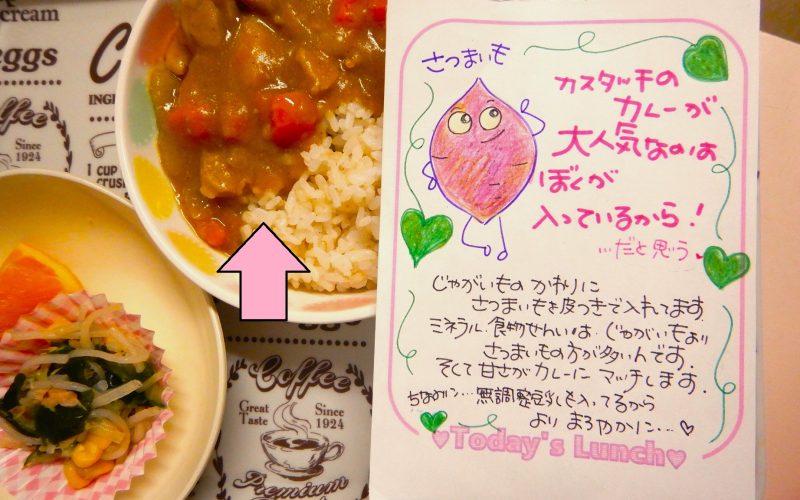 cream
eggs
C
INGR
Coffee
Since
1924
1 CUP
crush
Coffee
Great
Taste
Since
1924
Premium
さつまいも
カスタッチの
カレーが
大人気なのは
ぼくが
入っているから!
…だと思う
じゃがいものかわりに
さつまいもを皮つきで入れてます
ミネラル、食物せんいは、じゃがいもより
さつまいもの方が多いんです。
そして甘さがカレーにマッチします。
ちなみに…無調整豆乳も入ってるから
よりまろやかに…♡
♥Today's Lunch♥